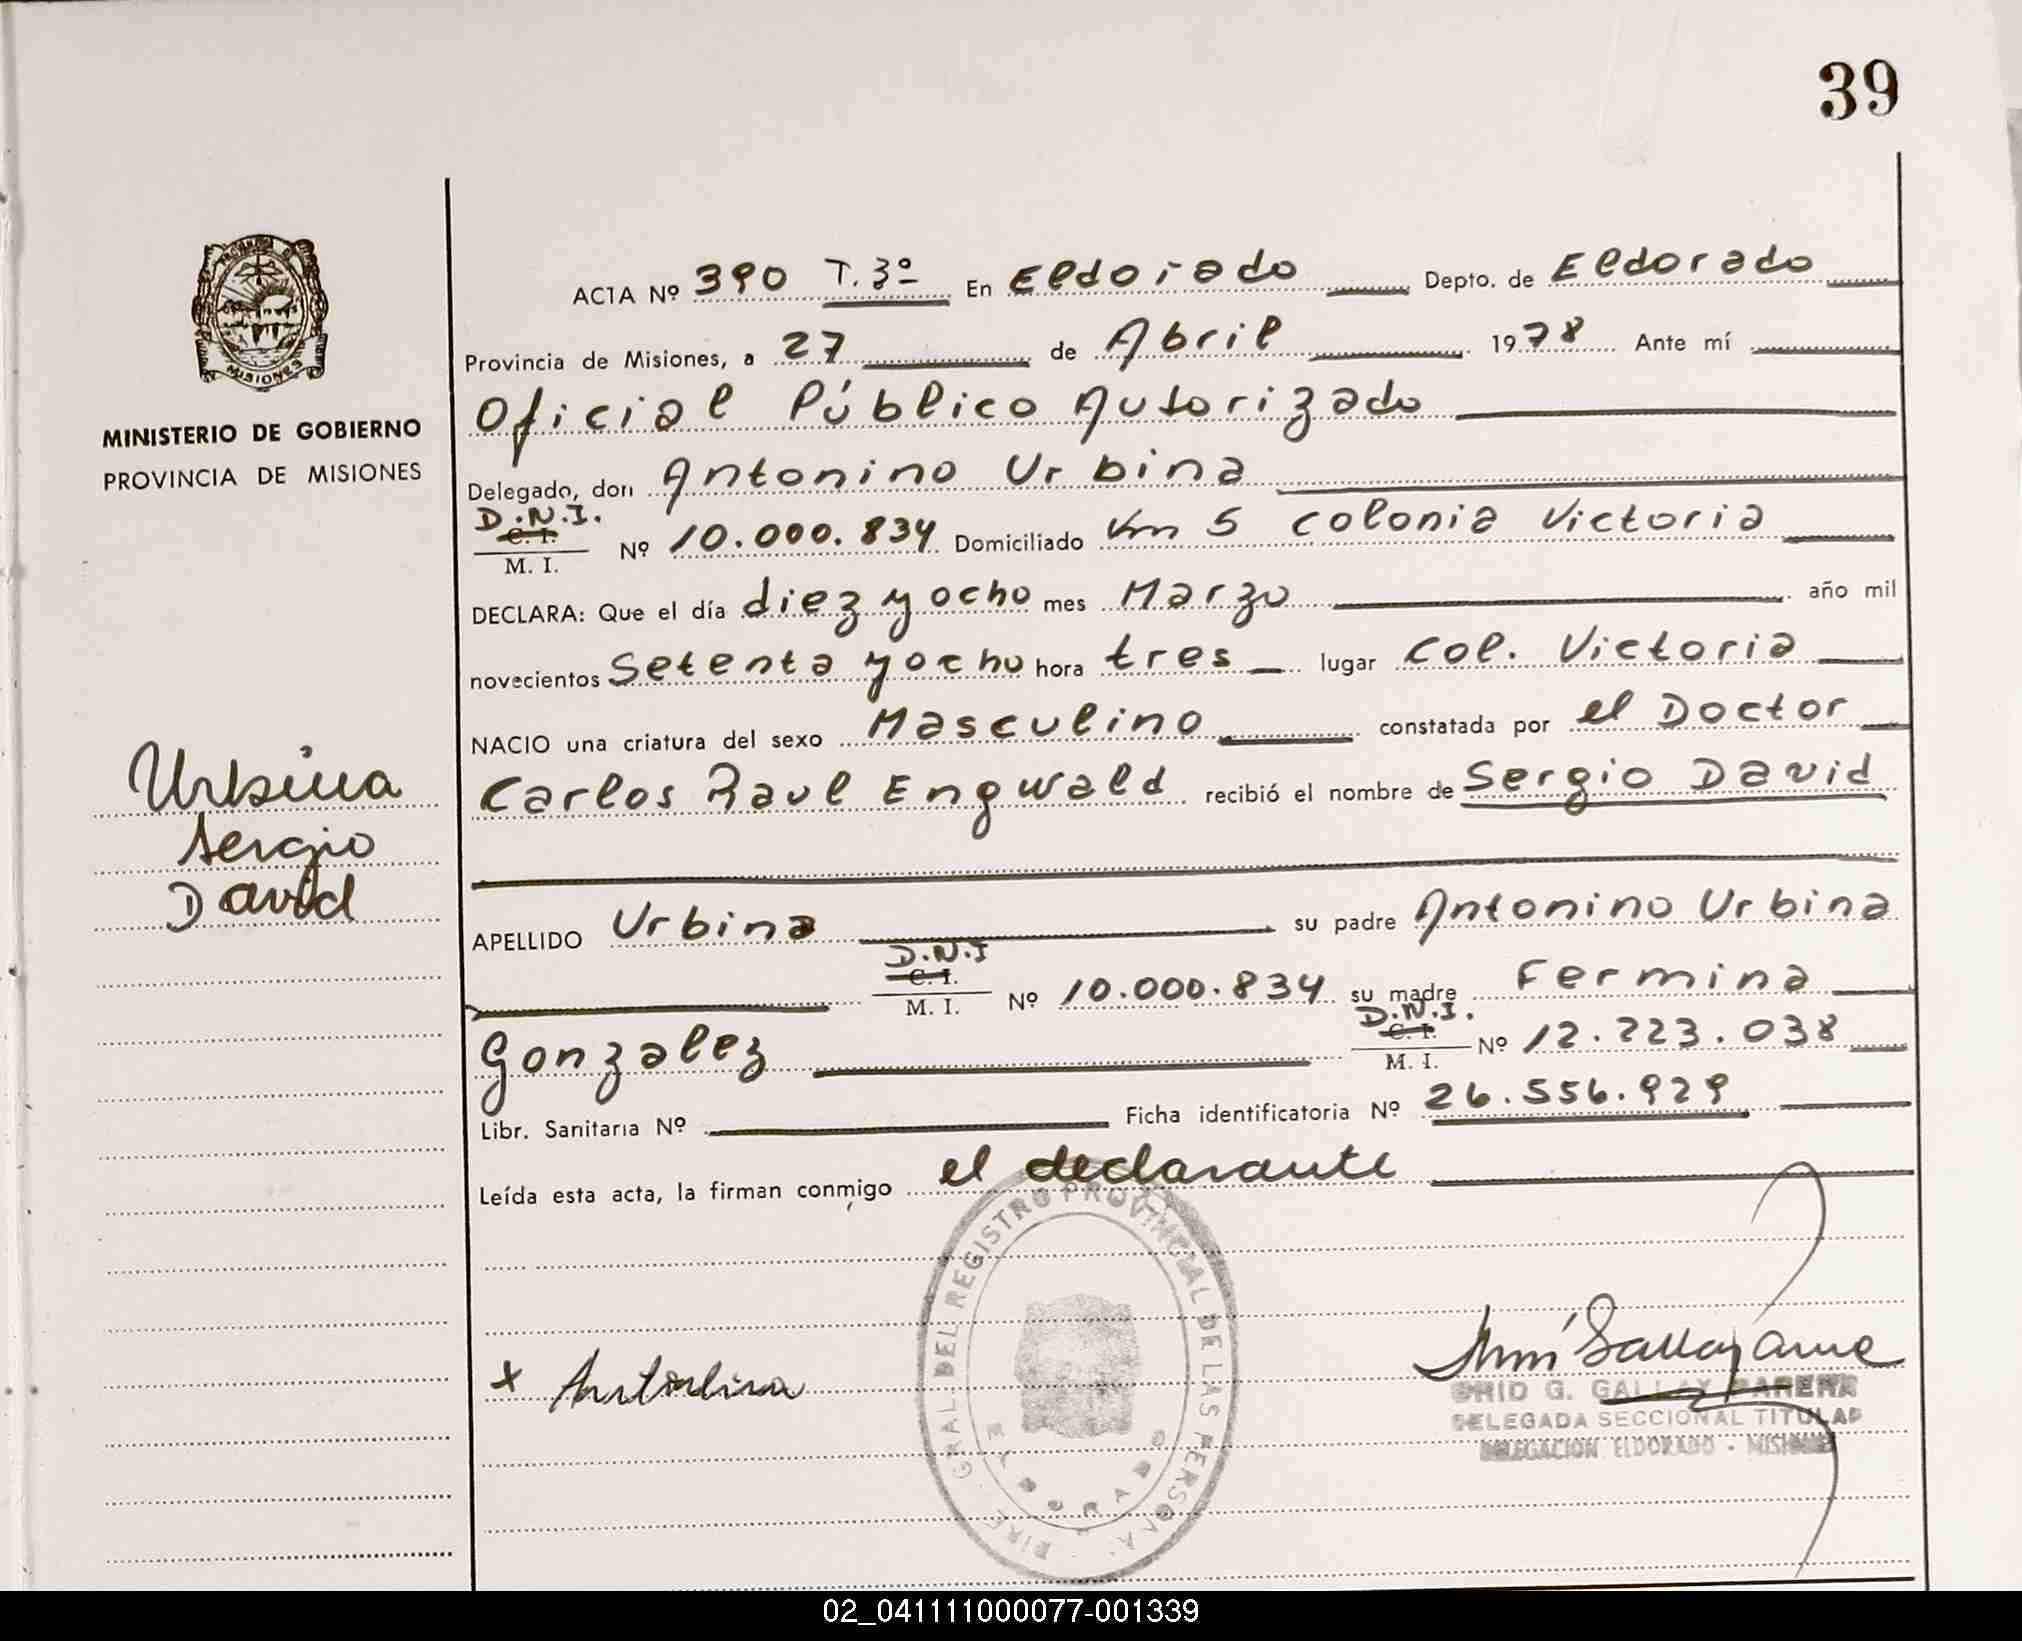 39
MISIONES
MINISTERIO DE GOBIERNO
PROVINCIA DE MISIONES
Urbina
Sergio
David
ACTA Nº 390 T. 3º En Eldorado Depto. de Eldorado
Provincia de Misiones, a 27 de Abril 1978 Ante mí
Oficial Público Autorizado
Delegado, don Antonino Urbina
D.N.I.
C. I.
M. I. Nº 10.000.834 Domiciliado Km 5 colonia Victoria
DECLARA: Que el día diez y ocho mes Marzo año mil
novecientos Setenta y ocho hora tres lugar Col. Victoria
NACIO una criatura del sexo Masculino constatada por el Doctor
Carlos Raul Engwald recibió el nombre de Sergio David
APELLIDO Urbina su padre Antonino Urbina
D.N.I
C. I.
M. I. Nº 10.000.834 su madre Fermina
Gonzalez D.N.I. C. I. M. I. Nº 12.223.038
Libr. Sanitaria Nº Ficha identificatoria Nº 26.556.929
Leída esta acta, la firman conmigo el declarante
GRAL. DEL REGISTRO PROVINCIAL DE LAS PERSONAS
ELDORADO
x
G. GALLAY PARERA
DELEGADA SECCIONAL TITULAR
DELEGACION ELDORADO - MISIONES
02_041111000077-001339